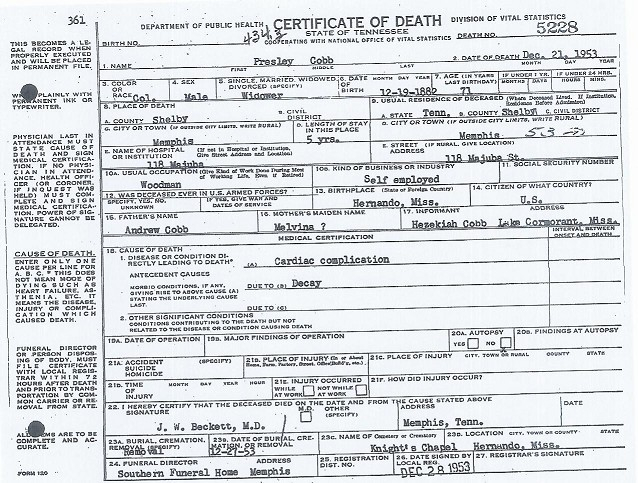 361
DEPARTMENT OF PUBLIC HEALTH CERTIFICATE OF DEATH DIVISION OF VITAL STATISTICS
STATE OF TENNESSEE
BIRTH NO. 4343 COOPERATING WITH NATIONAL OFFICE OF VITAL STATISTICS DEATH NO. 5228
THIS BECOMES A LEGAL RECORD WHEN PROPERLY EXECUTED AND WILL BE PLACED IN PERMANENT FILE.
WRITE PLAINLY WITH PERMANENT INK OR TYPEWRITER.
PHYSICIAN LAST IN ATTENDANCE MUST STATE CAUSE OF DEATH AND SIGN MEDICAL CERTIFICATION. IF NO PHYSICIAN IN ATTENDANCE, HEALTH OFFICER (OR CORONER, IF INQUEST WAS HELD) MUST COMPLETE AND SIGN MEDICAL CERTIFICATION. POWER OF SIGNATURE CANNOT BE DELEGATED.
CAUSE OF DEATH.
ENTER ONLY ONE CAUSE PER LINE FOR A. B. C. * THIS DOES NOT MEAN MODE OF DYING SUCH AS HEART FAILURE, ASTHENIA, ETC. IT MEANS THE DISEASE, INJURY OR COMPLICATION WHICH CAUSED DEATH.
FUNERAL DIRECTOR OR PERSON DISPOSING OF BODY, MUST FILE CERTIFICATE WITH LOCAL REGISTRAR WITHIN 72 HOURS AFTER DEATH AND PRIOR TO TRANSPORTATION BY COMMON CARRIER OR REMOVAL FROM STATE.
ALL ITEMS ARE TO BE COMPLETE AND ACCURATE.
FORM 120
1. NAME Presley Cobb
FIRST MIDDLE LAST
2. DATE OF DEATH Dec. 21, 1953
MONTH DAY YEAR
3. COLOR OR RACE Col. 4. SEX Male 5. SINGLE, MARRIED, WIDOWED, DIVORCED (SPECIFY) Widower 6. DATE OF BIRTH MONTH DAY YEAR 12-19-1882 7. AGE (IN YEARS LAST BIRTHDAY) 71 IF UNDER 1 YR. MONTHS DAYS IF UNDER 24 HRS. HOURS MINS.
8. PLACE OF DEATH
A. COUNTY Shelby B. CIVIL DISTRICT
C. CITY OR TOWN (IF OUTSIDE CITY LIMITS, WRITE RURAL) Memphis D. LENGTH OF STAY IN THIS PLACE 5 yrs.
E. NAME OF HOSPITAL OR INSTITUTION (If not in Hospital or Institution, Give Street Address and Location) 118 Majuba
9. USUAL RESIDENCE OF DECEASED (Where Deceased Lived. If Institution, Residence Before Admission)
A. STATE Tenn. B. COUNTY Shelby C. CIVIL DISTRICT
D. CITY OR TOWN (IF OUTSIDE CITY LIMITS, WRITE RURAL) Memphis
E. STREET ADDRESS (IF RURAL, GIVE LOCATION) 118 Majuba St.
10A. USUAL OCCUPATION (Give Kind of Work Done During Most of Working Life, Even if Retired) Woodman
10B. KIND OF BUSINESS OR INDUSTRY Self employed
11. SOCIAL SECURITY NUMBER
12. WAS DECEASED EVER IN U.S. ARMED FORCES?
SPECIFY, YES, NO, UNKNOWN IF YES, GIVE WAR AND DATES OF SERVICE
13. BIRTHPLACE (State of Foreign Country) Hernando, Miss.
14. CITIZEN OF WHAT COUNTRY? U.S.
15. FATHER'S NAME Andrew Cobb
16. MOTHER'S MAIDEN NAME Melvina ?
17. INFORMANT Hezekiah Cobb ADDRESS Lake Cormorant, Miss.
MEDICAL CERTIFICATION
INTERVAL BETWEEN ONSET AND DEATH
18. CAUSE OF DEATH
1. DISEASE OR CONDITION DIRECTLY LEADING TO DEATH* (A) Cardiac complication
ANTECEDENT CAUSES
MORBID CONDITIONS, IF ANY, GIVING RISE TO ABOVE CAUSE (A) STATING THE UNDERLYING CAUSE LAST.
DUE TO (B) Decay
DUE TO (C)
2. OTHER SIGNIFICANT CONDITIONS
CONDITIONS CONTRIBUTING TO THE DEATH BUT NOT RELATED TO THE DISEASE OR CONDITION CAUSING DEATH
19A. DATE OF OPERATION 19B. MAJOR FINDINGS OF OPERATION 20A. AUTOPSY YES NO 20B. FINDINGS AT AUTOPSY
21A. ACCIDENT SUICIDE HOMICIDE (SPECIFY) 21B. PLACE OF INJURY (In or About Home, Farm, Factory, Street, Office Build'g, etc.) 21C. PLACE OF INJURY CITY, TOWN OR RURAL COUNTY STATE
21D. TIME OF INJURY MONTH DAY YEAR HOUR 21E. INJURY OCCURRED WHILE AT WORK NOT WHILE AT WORK 21F. HOW DID INJURY OCCUR?
22. I HEREBY CERTIFY THAT THE DECEASED DIED ON THE DATE AND FROM THE CAUSE STATED ABOVE
SIGNATURE J. W. Beckett, M.D. M.D. OTHER (SPECIFY) ADDRESS Memphis, Tenn. DATE
23A. BURIAL, CREMATION, REMOVAL (SPECIFY) Removal 23B. DATE OF BURIAL, CREMATION, OR REMOVAL 12-27-53 23C. NAME OF Cemetery or Crematory Knight's Chapel 23D. LOCATION CITY, TOWN OR COUNTY STATE Hernando, Miss.
24. FUNERAL DIRECTOR ADDRESS Southern Funeral Home Memphis 25. REGISTRATION DIST. NO. 26. DATE SIGNED BY LOCAL REG. DEC 28 1953 27. REGISTRAR'S SIGNATURE